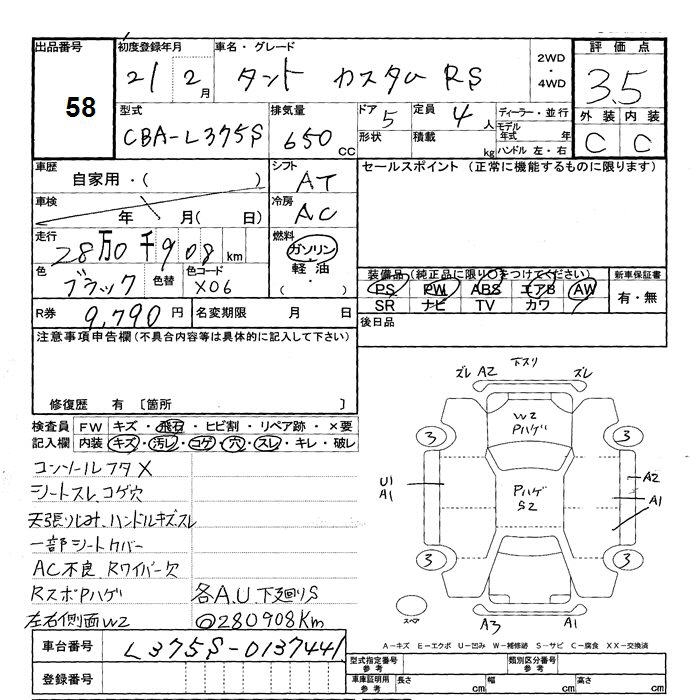 出品番号 初度登録年月 車名・グレード 2WD ・ 4WD 評価点
58 21 2月 タント カスタム RS 3.5
型式 排気量 ドア 5 定員 4人 ディーラー・並行 外装 内装
CBA-L375S 650 CC 形状 積載 kg モデル年式 年 ハンドル 左・右 C C
車歴 自家用・( ) シフト AT セールスポイント (正常に機能するものに限ります)
車検 年 月( 日) 冷房 AC
走行 28万0千908km 燃料 ガソリン 軽油 ( ・ )
色 ブラック 色替 色コード X06
装備品(純正品に限り○をつけてください) 新車保証書
PS PW ABS エアB AW 有・無
SR ナビ TV カワ
R券 9,790円 名変期限 月 日 後日品
注意事項申告欄(不具合内容等は具体的に記入して下さい)
修復歴 有 [箇所 ]
検査員 FW キズ・飛石・ヒビ割・リペア跡・×要
記入欄 内装 キズ・汚レ・コゲ・穴・スレ・キレ・破レ
コンソールフタX
シートスレ コゲ穴
天張りじみ、ハンドルキズスレ
一部シートカバー
AC不良 Rワイパー欠
RスポPハゲ 各A.U 下廻りS
左右側面W2 @280908Km
下スリ
ズレ A2 ズレ
W2
Pハゲ
3 3
U1
A1
Pハゲ
S2
A2
A1
3 3
スペア
A3 A1
A-キズ E-エクボ U-凹み W-補修跡 S-サビ C-腐食 XX-交換済
車台番号 L375S-0137441
登録番号
型式指定番号 参考 類別区分番号 参考
車庫証明用 参考 長さ cm 幅 cm 高さ cm